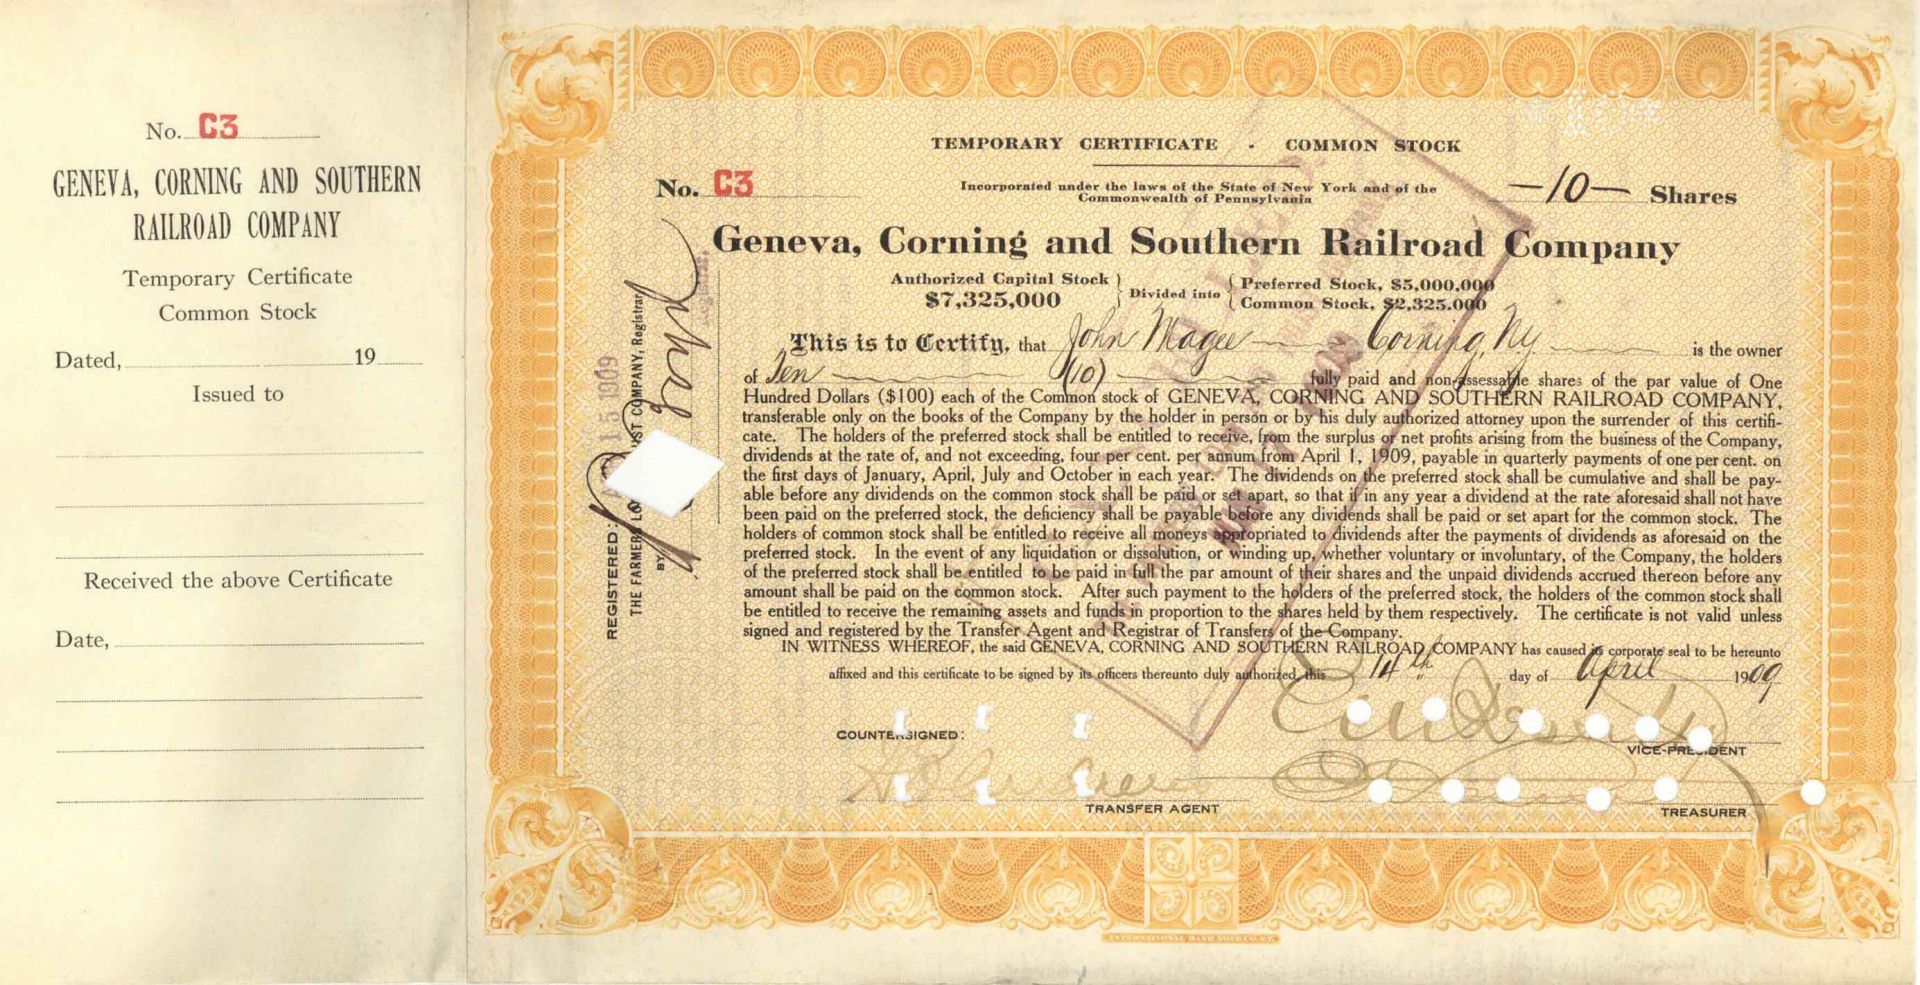 No. C3
GENEVA, CORNING AND SOUTHERN
RAILROAD COMPANY
Temporary Certificate
Common Stock
Dated, 19
Issued to
Received the above Certificate
Date,
TEMPORARY CERTIFICATE - COMMON STOCK
No. C3
Incorporated under the laws of the State of New York and of the
Commonwealth of Pennsylvania
—10— Shares
Geneva, Corning and Southern Railroad Company
Authorized Capital Stock
$7,325,000
Divided into
Preferred Stock, $5,000,000
Common Stock, $2,325.000
This is to Certify, that John Magee Corning, N.Y. is the owner
of Ten (10) fully paid and non-assessable shares of the par value of One
Hundred Dollars ($100) each of the Common stock of GENEVA, CORNING AND SOUTHERN RAILROAD COMPANY,
transferable only on the books of the Company by the holder in person or by his duly authorized attorney upon the surrender of this certifi-
cate. The holders of the preferred stock shall be entitled to receive, from the surplus or net profits arising from the business of the Company,
dividends at the rate of, and not exceeding, four per cent. per annum from April 1, 1909, payable in quarterly payments of one per cent. on
the first days of January, April, July and October in each year. The dividends on the preferred stock shall be cumulative and shall be pay-
able before any dividends on the common stock shall be paid or set apart, so that if in any year a dividend at the rate aforesaid shall not have
been paid on the preferred stock, the deficiency shall be payable before any dividends shall be paid or set apart for the common stock. The
holders of common stock shall be entitled to receive all moneys appropriated to dividends after the payments of dividends as aforesaid on the
preferred stock. In the event of any liquidation or dissolution, or winding up, whether voluntary or involuntary, of the Company, the holders
of the preferred stock shall be entitled to be paid in full the par amount of their shares and the unpaid dividends accrued thereon before any
amount shall be paid on the common stock. After such payment to the holders of the preferred stock, the holders of the common stock shall
be entitled to receive the remaining assets and funds in proportion to the shares held by them respectively. The certificate is not valid unless
signed and registered by the Transfer Agent and Registrar of Transfers of the Company.
IN WITNESS WHEREOF, the said GENEVA, CORNING AND SOUTHERN RAILROAD COMPANY has caused its corporate seal to be hereunto
affixed and this certificate to be signed by its officers thereunto duly authorized, this 14th day of April 1909
COUNTERSIGNED:
VICE-PRESIDENT
TRANSFER AGENT
TREASURER
REGISTERED: 15 1909
THE FARMERS LO ST COMPANY, Registrar
BY
Registrar.
INTERNATIONAL BANK NOTE CO. N.Y.